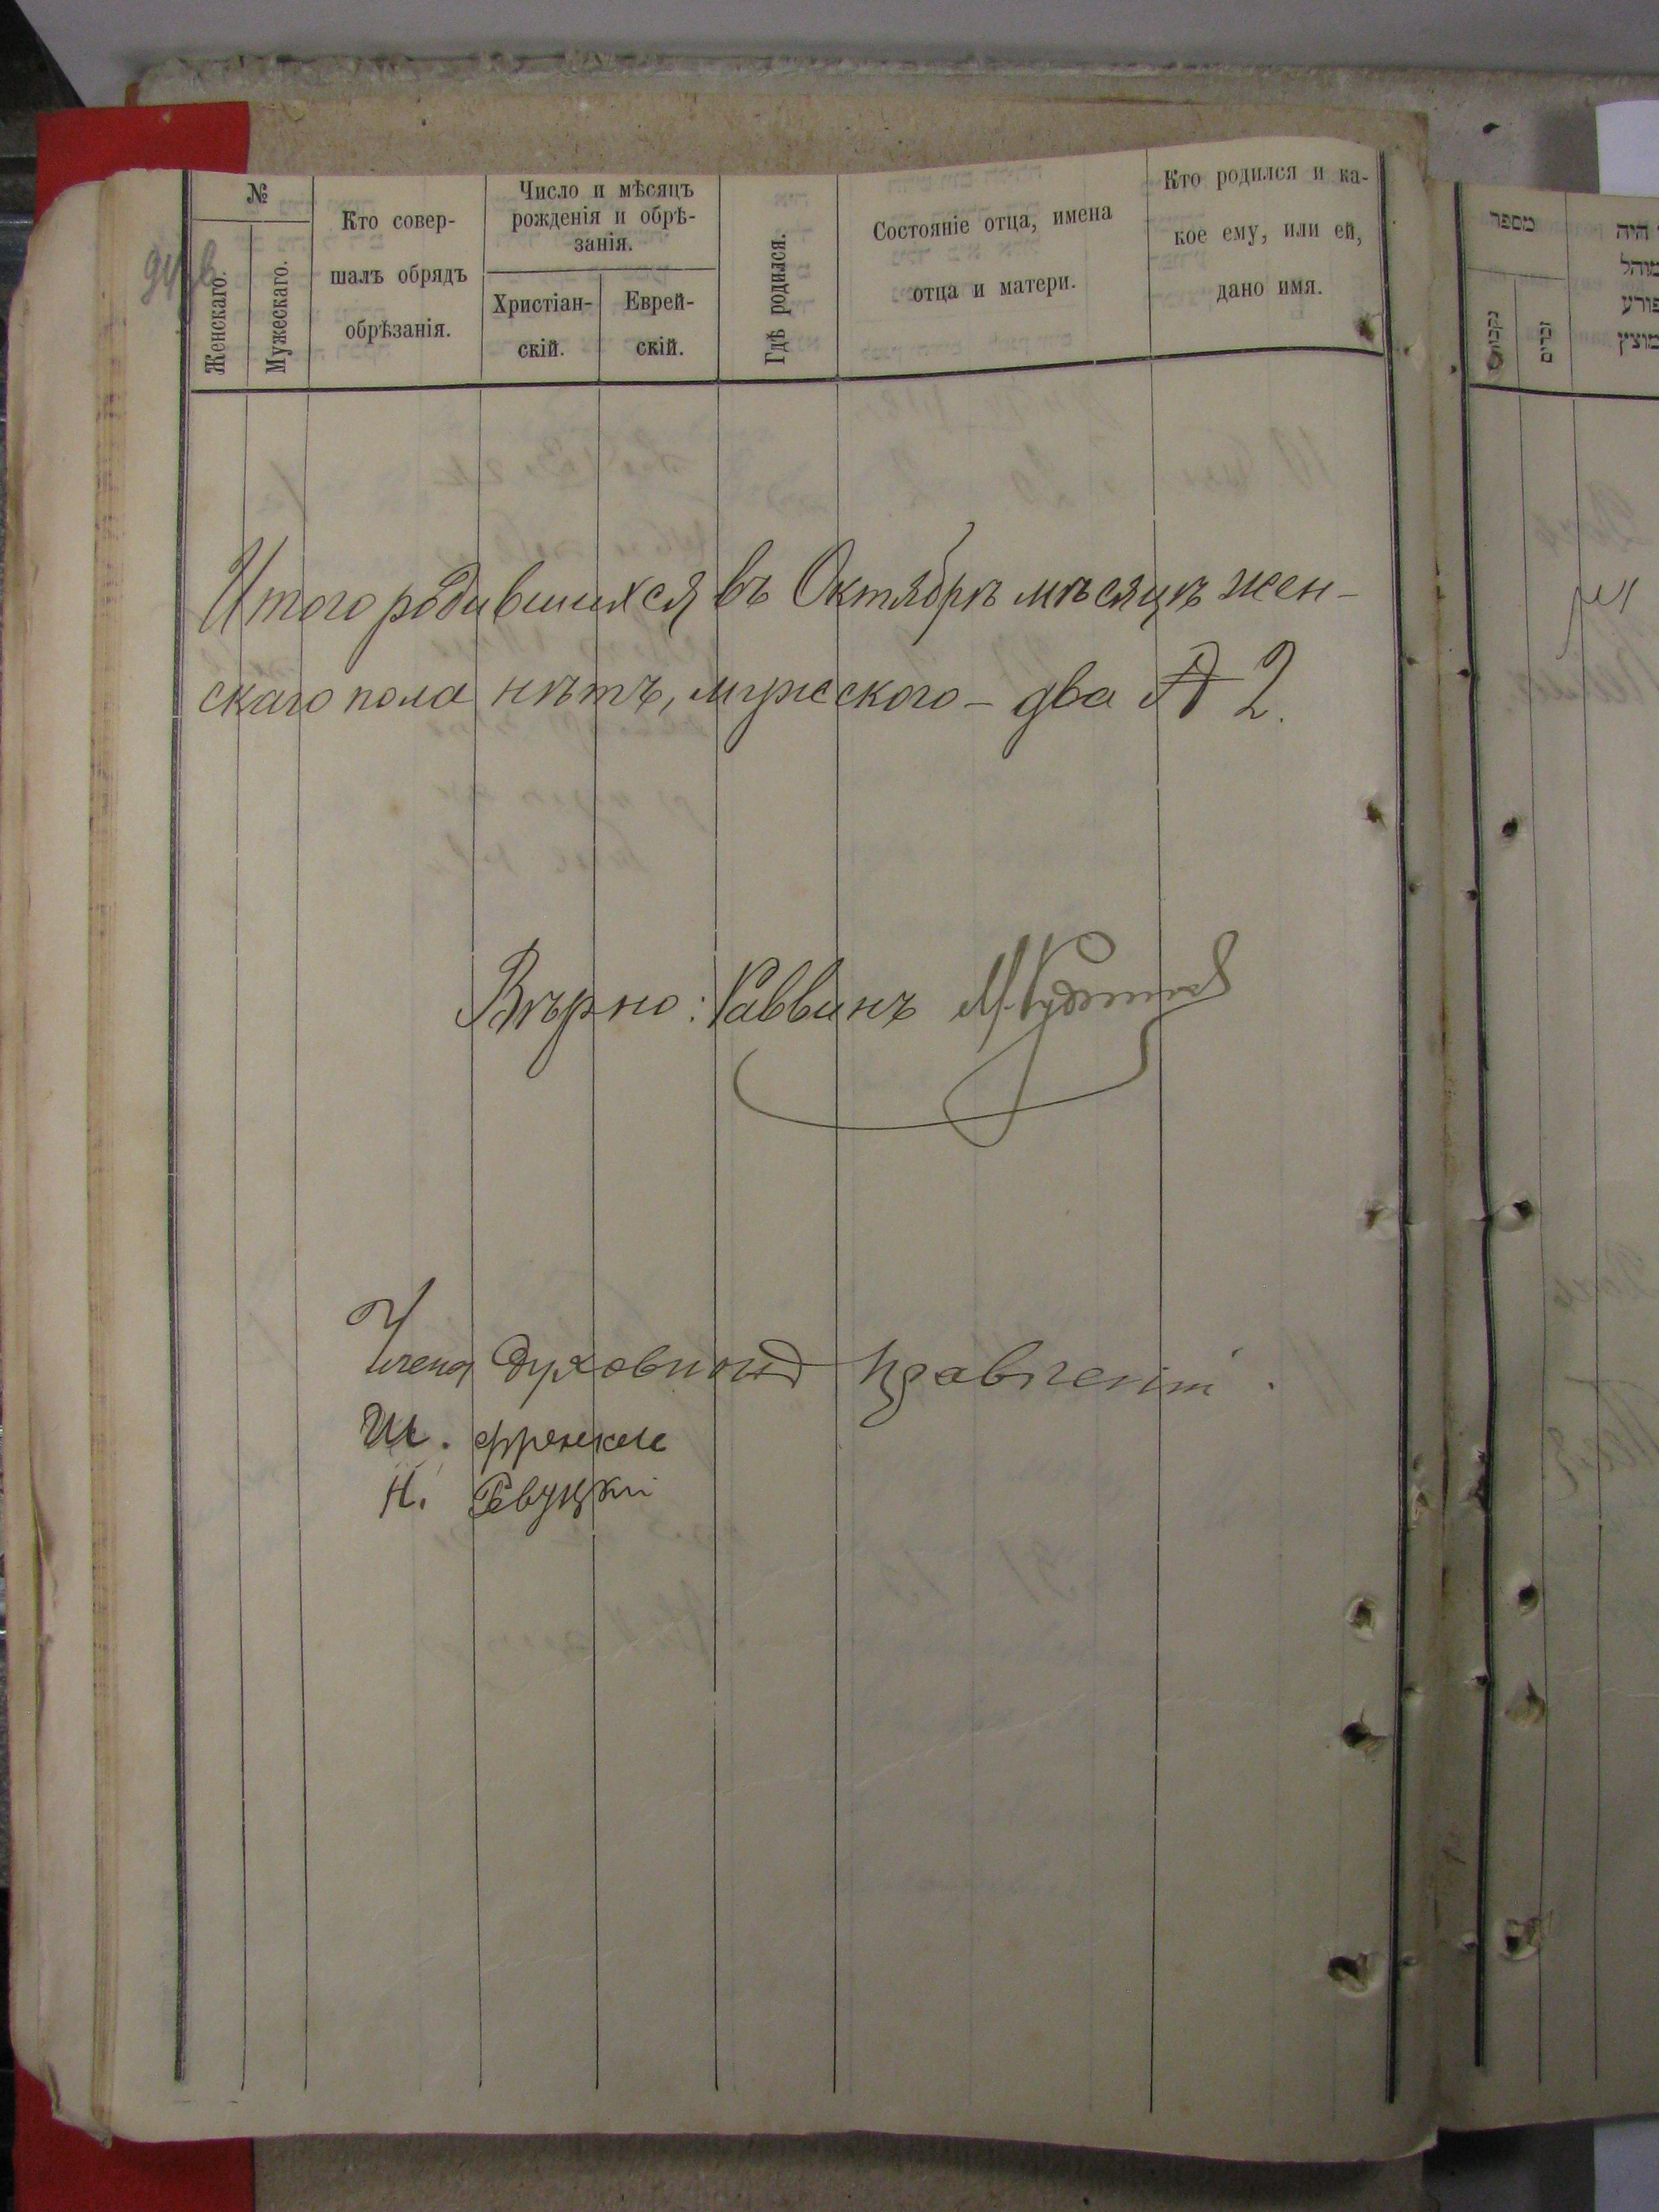 №
Женскаго.
Мужескаго.
Кто совер-
шалъ обрядъ
обрѣзанія.
Число и мѣсяцъ
рожденія и обрѣ-
занія.
Христіан-
скій.
Еврей-
скій.
Гдѣ родился.
Состояніе отца, имена
отца и матери.
Кто родился и ка-
кое ему, или ей,
дано имя.
Итого родившихся въ Октябрѣ мѣсяцѣ жен-
скаго пола нѣтъ, мужскаго - два 2.
Вѣрно: Раввинъ М.
Члена Духовной правленіи.
Ш. Френкель
Н. Ревуцкій
מספר
נקבות
זכרים
היה
מוהל
פורע
מוצץ